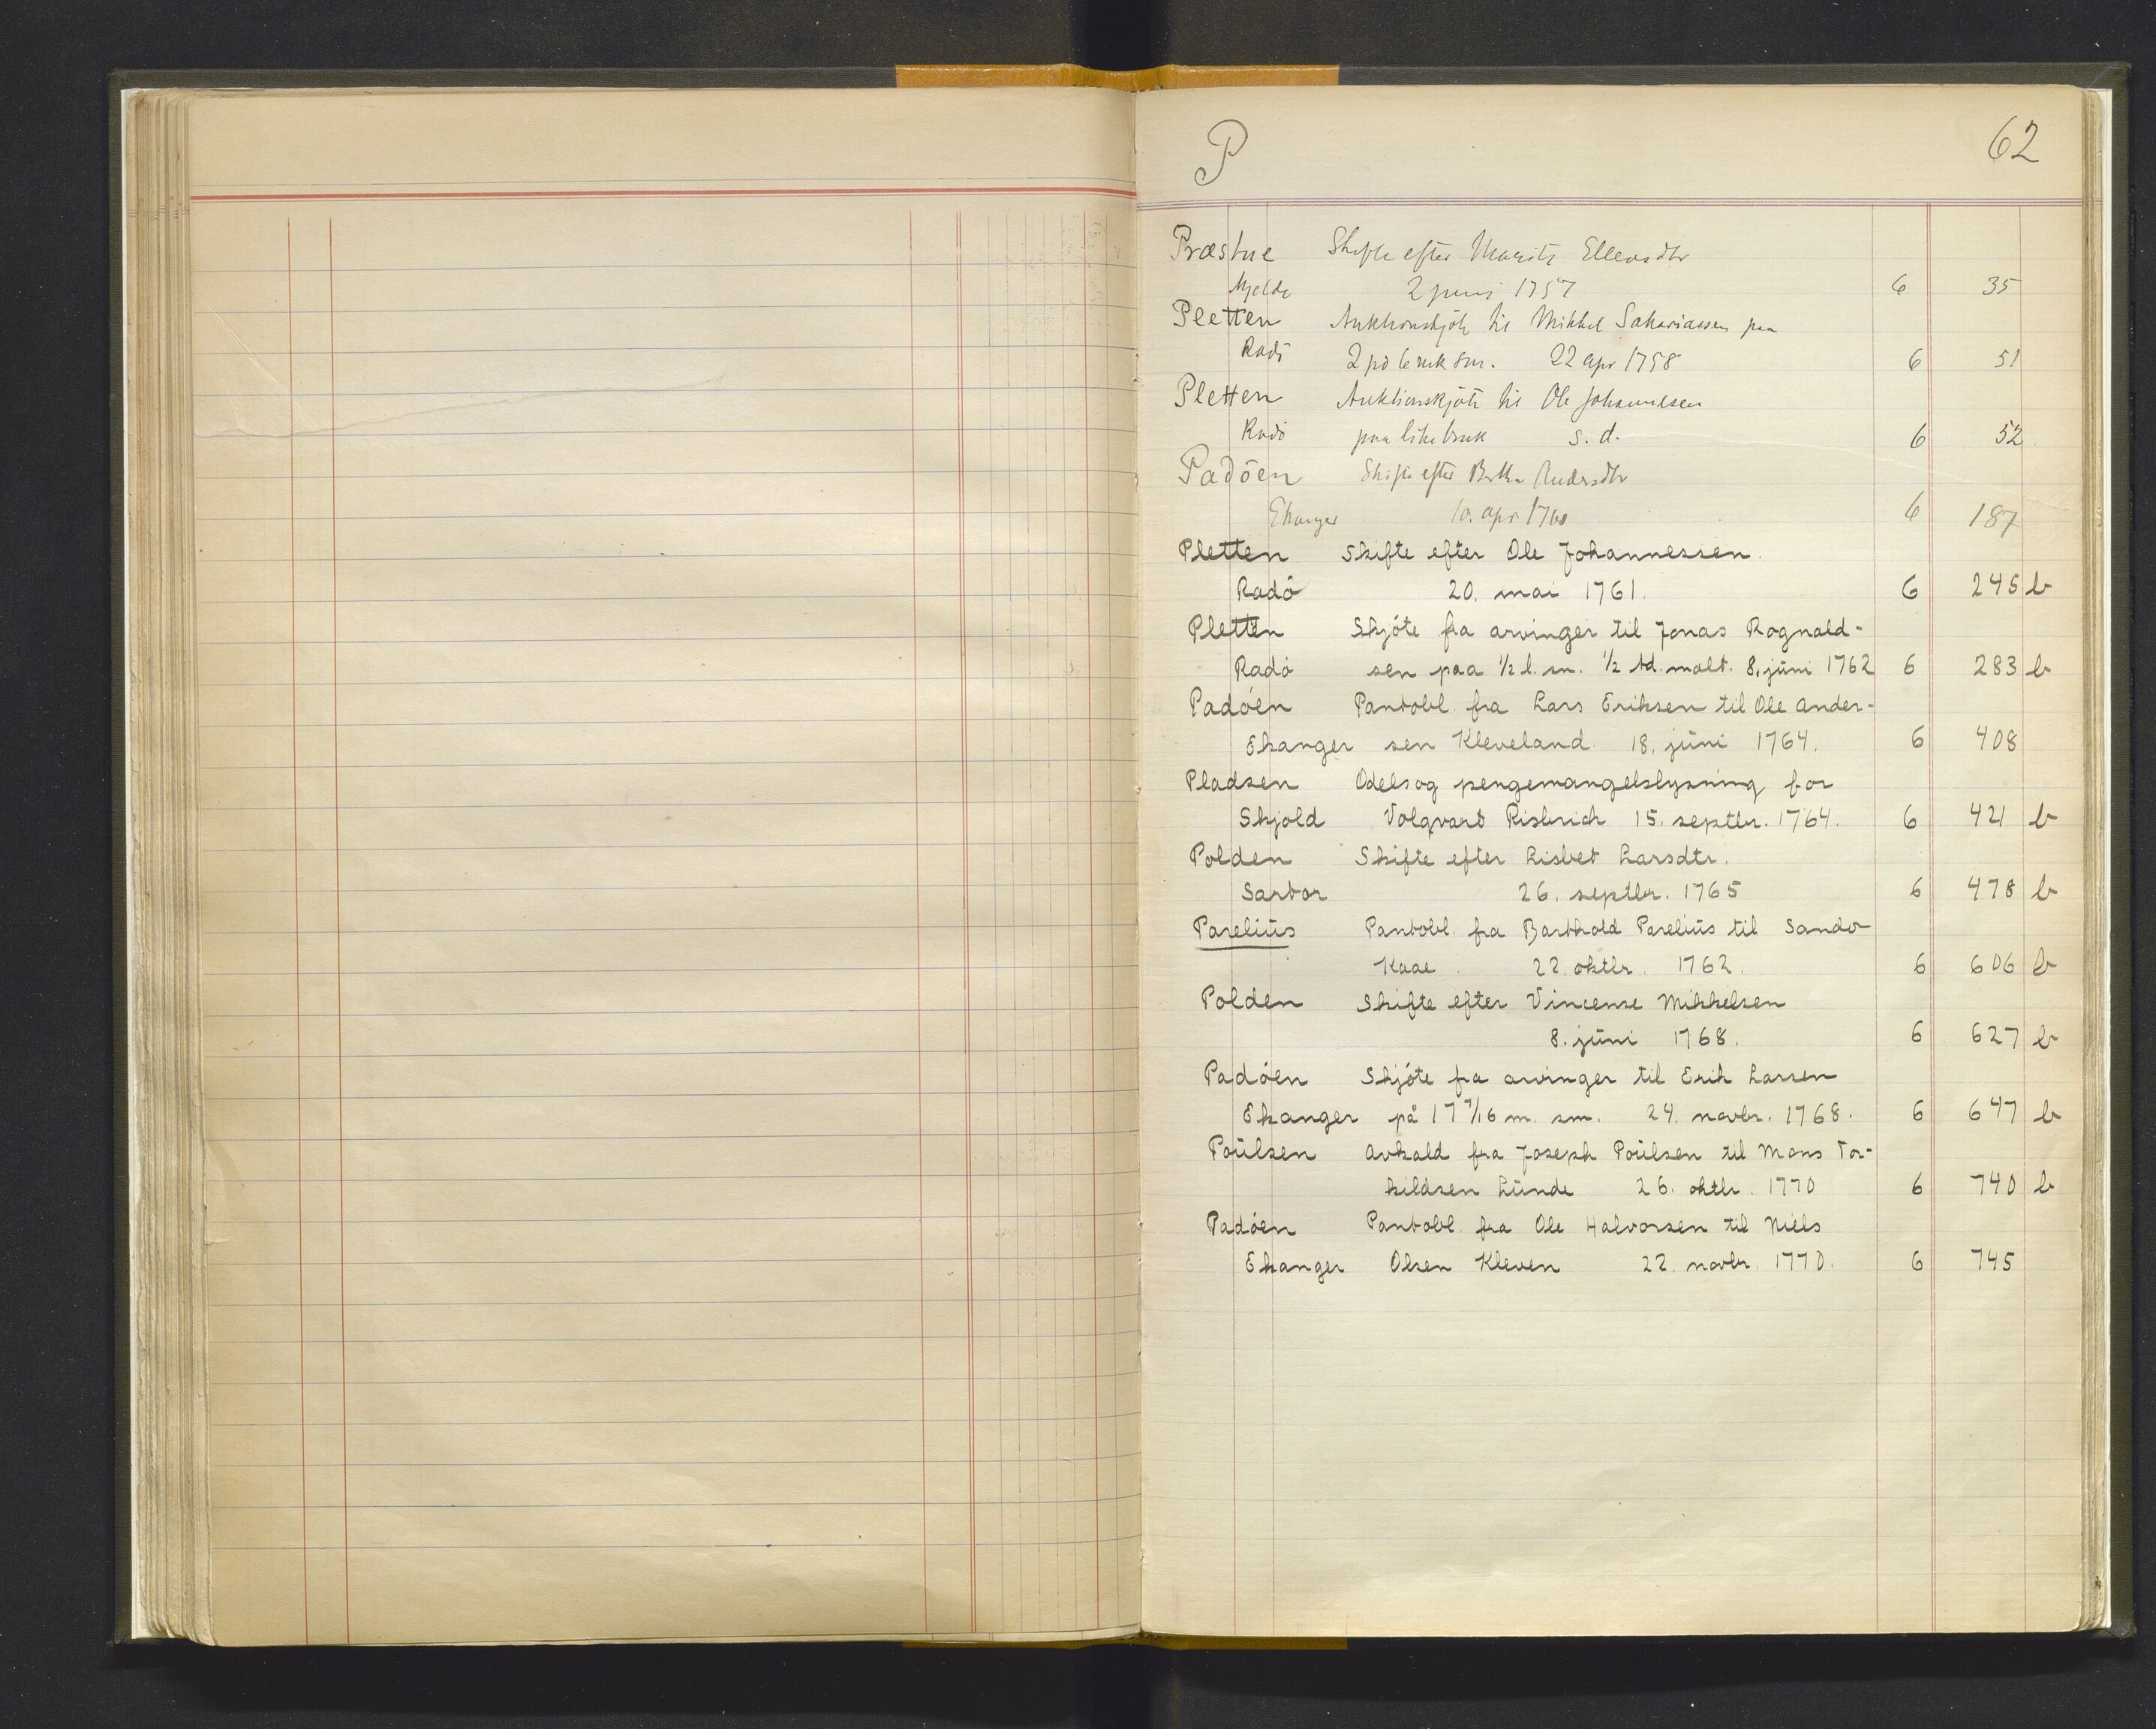 P 62
Præstue Skifte efter Marits Ellensdtr
Mjelde 2 juni 1757 6 35
Pletten Auktionskjöte til Mikkel Sakariassen paa
Radö 2 pd 6 mk sm. 22 apr 1758 6 51
Pletten Auktionskjöte til Ole Johannesen
Radö paa like bruk s. d. 6 52
Padöen Skifte efter Andersdtr
Ekanger 10. apr 1760 6 187
Pletten Skifte efter Ole Johannessen.
Radö 20. mai 1761. 6 245 b
Pletten Skjöte fra arvinger til Jonas Rognald-
Radö sen paa ½ l. sm. ½ td. malt. 8. juni 1762 6 283 b
Padöen Pantobl. fra Lars Eriksen til Ole Ander-
Ekanger sen Kleveland. 18. juni 1764. 6 408
Pladsen Odels og pengemangelslysning for
Skjold Volqvart Risbrich 15. septbr. 1764. 6 421 b
Polden Skifte efter Lisbet Larsdtr.
Sartor 26. septbr. 1765 6 478 b
Parelius Pantobl. fra Barthold Parelius til Sander
Kaae 22. oktbr. 1762. 6 606 b
Polden Skifte efter Vincense Mikkelsen
8. juni 1768. 6 627 b
Padöen Skjöte fra arvinger til Erik Larsen
Ekanger på 17 7/16 m. sm. 24. novbr. 1768. 6 647 b
Poulsen Avkald fra Joseph Poulsen til Mons Tor-
kildsen Lunde 26. oktbr. 1770 6 740 b
Padöen Pantobl. fra Ole Halvorsen til Niels
Ekanger Olsen Kleven 22. novbr. 1770. 6 745